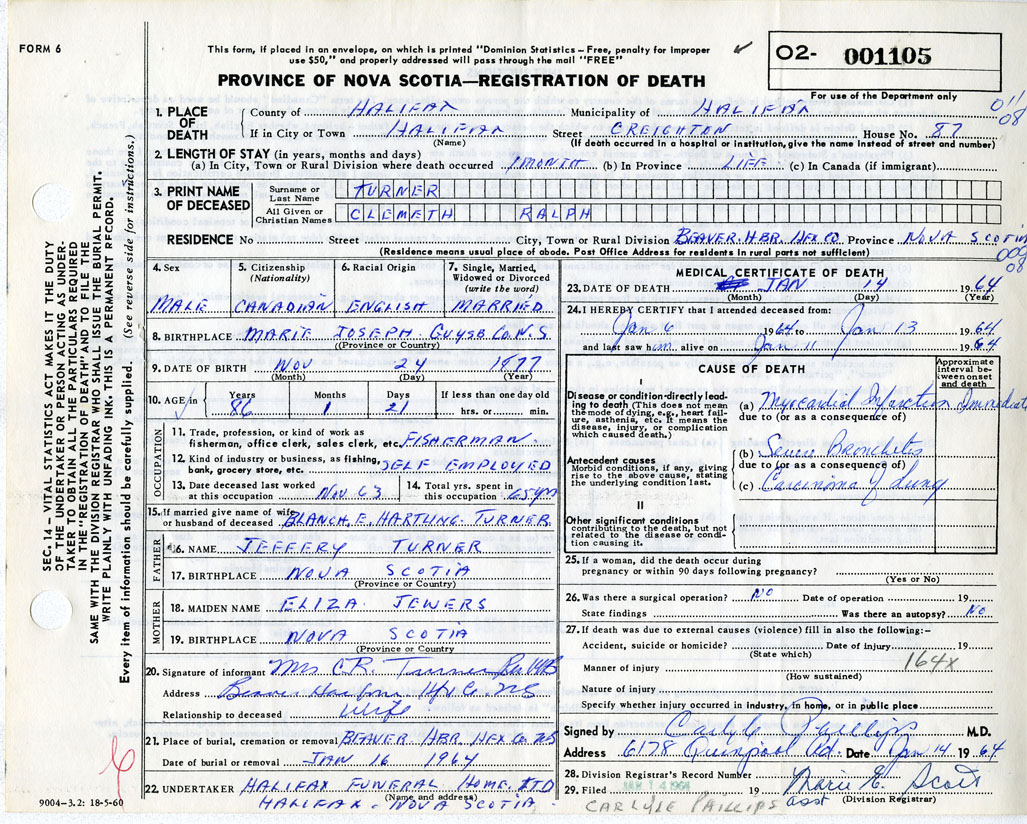 FORM 6
This form, if placed in an envelope, on which is printed "Dominion Statistics—Free, penalty for improper
use $50," and properly addressed will pass through the mail "FREE"
PROVINCE OF NOVA SCOTIA—REGISTRATION OF DEATH
O2- 001105
For use of the Department only
011
08
SEC. 14 – VITAL STATISTICS ACT MAKES IT THE DUTY
OF THE UNDERTAKER OR PERSON ACTING AS UNDER-
TAKER TO OBTAIN ALL THE PARTICULARS REQUIRED
IN THE "REGISTRATION OF DEATH" AND TO FILE THE
SAME WITH THE DIVISION REGISTRAR WHO SHALL ISSUE THE BURIAL PERMIT.
WRITE PLAINLY WITH UNFADING INK. THIS IS A PERMANENT RECORD.
Every item of information should be carefully supplied. (See reverse side for instructions.)
1. PLACE OF DEATH
County of HALIFAX Municipality of HALIFAX
If in City or Town HALIFAX Street CREIGHTON House No. 87
(Name) (If death occurred in a hospital or institution, give the name instead of street and number)
2. LENGTH OF STAY (in years, months and days)
(a) In City, Town or Rural Division where death occurred 1 MONTH (b) In Province LIFE (c) In Canada (if immigrant)
3. PRINT NAME OF DECEASED
Surname or Last Name TURNER
All Given or Christian Names CLEMETH RALPH
RESIDENCE No Street City, Town or Rural Division BEAVER. HBR. HFX CO Province NOVA SCOTIA
(Residence means usual place of abode. Post Office Address for residents in rural parts not sufficient)
08
4. Sex 5. Citizenship (Nationality) 6. Racial Origin 7. Single, Married, Widowed or Divorced (write the word)
MALE CANADIAN ENGLISH MARRIED
8. BIRTHPLACE MARIE JOSEPH. GUYSB CO. N.S
(Province or Country)
9. DATE OF BIRTH NOV 24 1877
(Month) (Day) (Year)
10. AGE in Years Months Days If less than one day old
86 1 21 hrs. or min.
OCCUPATION
11. Trade, profession, or kind of work as
fisherman, office clerk, sales clerk, etc. FISHERMAN.
12. Kind of industry or business, as fishing,
bank, grocery store, etc. SELF EMPLOYED
13. Date deceased last worked 14. Total yrs. spent in
at this occupation NOV 63 this occupation 65 yrs
15. If married give name of wife
or husband of deceased BLANCH. E. HARTLING. TURNER.
FATHER
16. NAME JEFFERY TURNER
17. BIRTHPLACE NOVA SCOTIA
(Province or Country)
MOTHER
18. MAIDEN NAME ELIZA JEWERS
19. BIRTHPLACE NOVA SCOTIA
(Province or Country
20. Signature of informant Mrs C.R. Turner
Address Beaver Harbour Hfx Co. NS
Relationship to deceased Wife
21. Place of burial, cremation or removal BEAVER HBR HFX CO. NS
Date of burial or removal JAN 16 1964
22. UNDERTAKER HALIFAX FUNERAL HOME. LTD
(Name and address)
HALIFAX. NOVA SCOTIA.
9004–3.2: 18-5-60
MEDICAL CERTIFICATE OF DEATH
23. DATE OF DEATH JAN 14 1964
(Month) (Day) (Year)
24. I HEREBY CERTIFY that I attended deceased from:
Jan 6 1964 to Jan 13 1964
and last saw him alive on Jan 11 1964
CAUSE OF DEATH
Approximate interval between onset and death
I
Disease or condition directly lead-
ing to death (This does not mean
the mode of dying, e.g., heart fail-
ure, asthenia, etc. It means the
disease, injury, or complication
which caused death.)
(a) Myocardial Infarction Immediate
due to (or as a consequence of)
Antecedent causes
Morbid conditions, if any, giving
rise to the above cause, stating
the underlying condition last.
(b) Severe Bronchitis
due to (or as a consequence of)
(c) Carcinoma of Lung
II
Other significant conditions
contributing to the death, but not
related to the disease or condi-
tion causing it.
25. If a woman, did the death occur during
pregnancy or within 90 days following pregnancy?
(Yes or No)
26. Was there a surgical operation? NO Date of operation 19
State findings Was there an autopsy? NO
27. If death was due to external causes (violence) fill in also the following:–
Accident, suicide or homicide? Date of injury 19
(State which)
Manner of injury 164x
(How sustained)
Nature of injury
Specify whether injury occurred in industry, in home, or in public place
Signed by Carlyle Phillips M.D.
Address 6178 Quinpool Rd. Date Jan 14 1964
28. Division Registrar's Record Number
29. Filed 14 1964 19 Marie E. Scott
asst (Division Registrar)
CARLYLE PHILLIPS